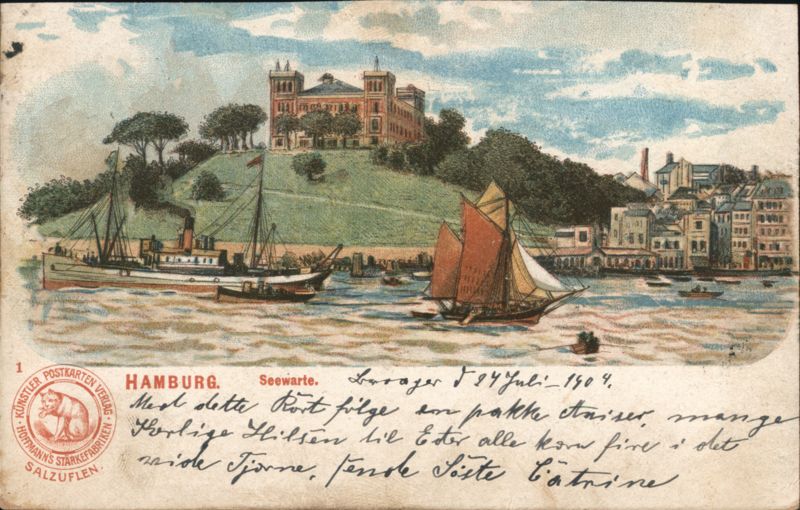 1
KÜNSTLER POSTKARTEN VERLAG
HOFFMANN'S STÄRKEFABRIKEN
SALZUFLEN.
HAMBURG. Seewarte.
Broager d 24 Juli - 1904.
Med dette Kort følge en pakke Aviser, mange
Kærlige Hilsen til Eder alle kom fire i det
vide Tjørne, Søste Catrine